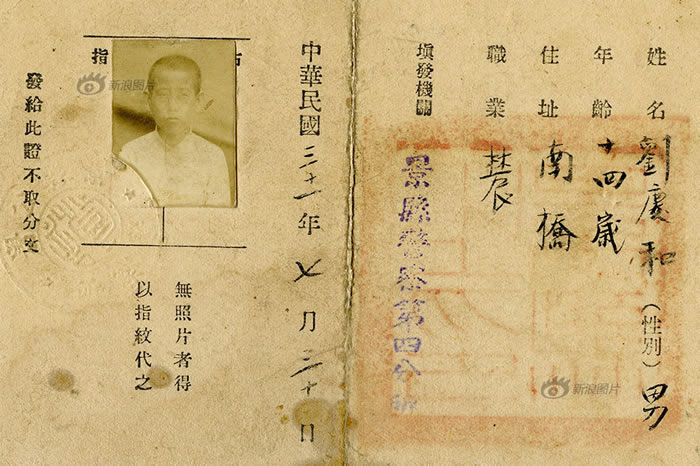 姓名 劉慶和 (性別) 男
年齡 十四歲
住址 南橋
職業 農
填發機關
景縣警察第四分
中華民國三十一年七月三十日
指
無照片者得
以指紋代之
發給此證不取分文
新浪图片
新浪图片